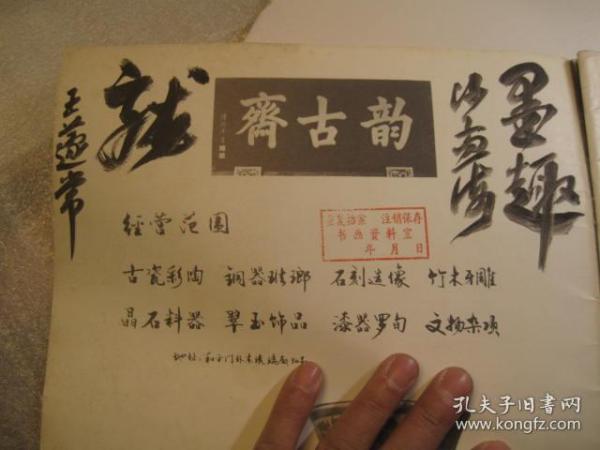 墨趣
沙孟海
韵古齋
龍
王蘧常
經营范围
古瓷彩陶 铜器珐瑯 石刻造像 竹木牙雕
晶石料器 翠玉饰品 漆器罗甸 文物杂项
地址:和平门外
注销保存
书画资料室
年 月 日
孔夫子旧書网
www.kongfz.com